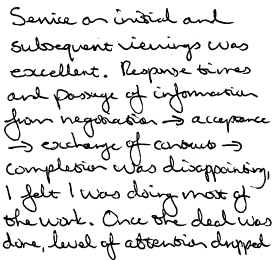 Service on initial and
subsequent viewings was
excellent. Response times
and passage of information
from negotiation → acceptance
→ exchange of contracts →
completion was disappointing,
I felt I was doing most of
the work. Once the deal was
done, level of attention dropped